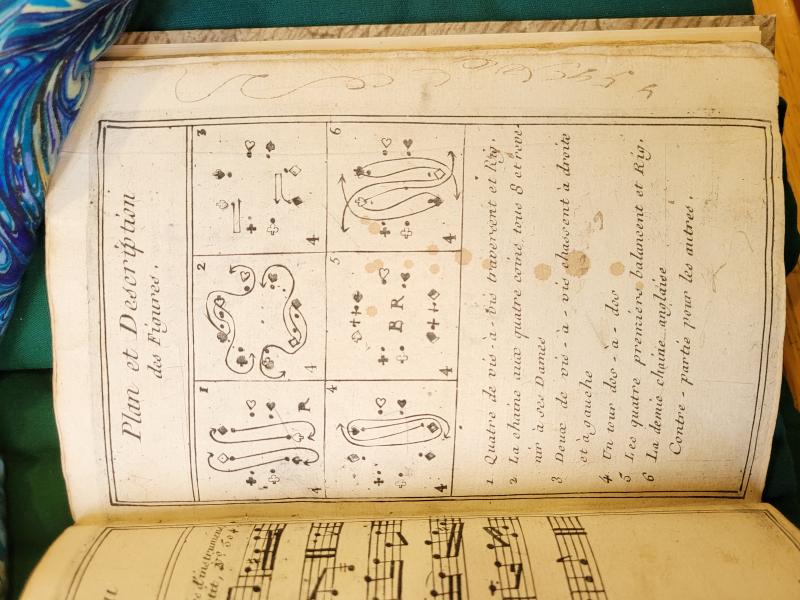 Plan et Description
des Figures.
1
2
3
4
4
4
R
4
5
6
B R
4
4
1 Quatre de vis-à-vis traversent et Rig.
2 La chaine aux quatre coins, tous 8 et reve-
nir à ses Dames
3 Deux de vis-à-vis chassent à droite
et à gauche
4 Un tour dos-à-dos
5 Les quatre premiers balancent et Rig.
6 La demie chaine anglaise
Contre-partie pour les autres.
d'instrumens